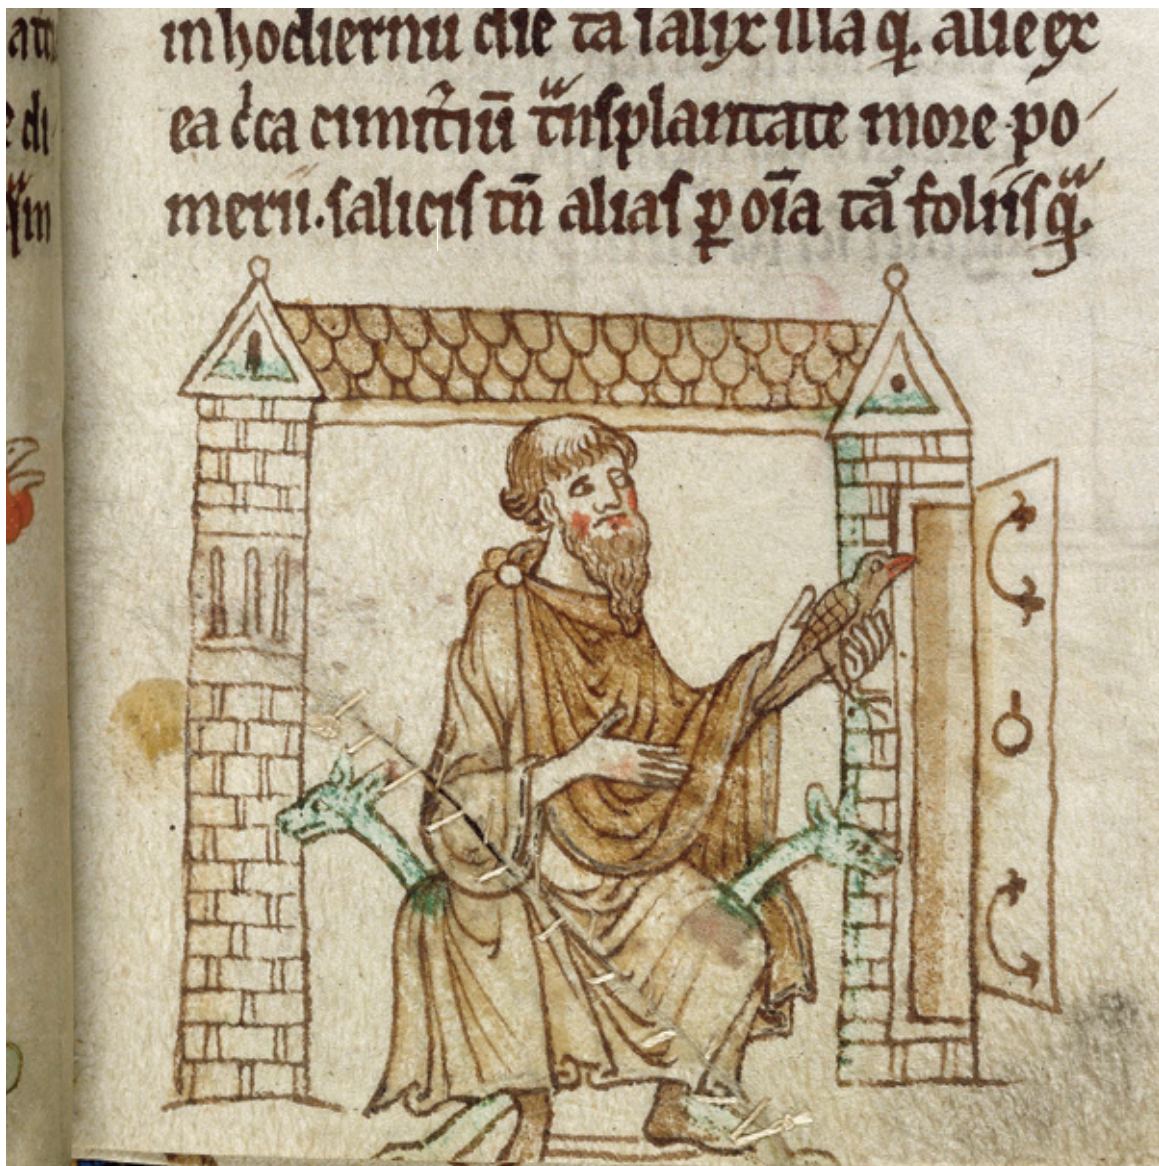 in hodiernū die ta salix illa q. alie ex
ea c̓ca cimit̓iū tͣnsplantate more po
merii. salicis tn̄ alias ꝑ oīa tā foliis qͣ.